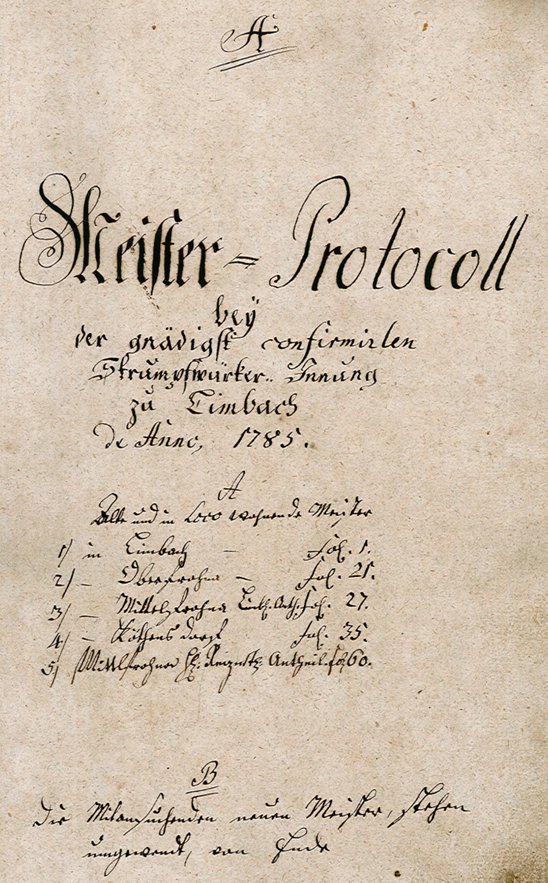 A
Meister = Protocoll
bey
der gnädigst confirmirten
Strumpfwürker.. Innung
zu Limbach
de Anno, 1785.
A
Alte und in Loco wohnende Meister
1) in Limbach – Fol. 1.
2) – Oberfrohna – Fol. 21.
3) – Mittelfrohna Limb. Anth. Fol. 27.
4) – Köthensdorf Fol. 35.
5) Mittelfrohna Antheil. fol. 60.
B
Die Mitansuchenden neuen Meister, stehen
umgewendt, von Ende